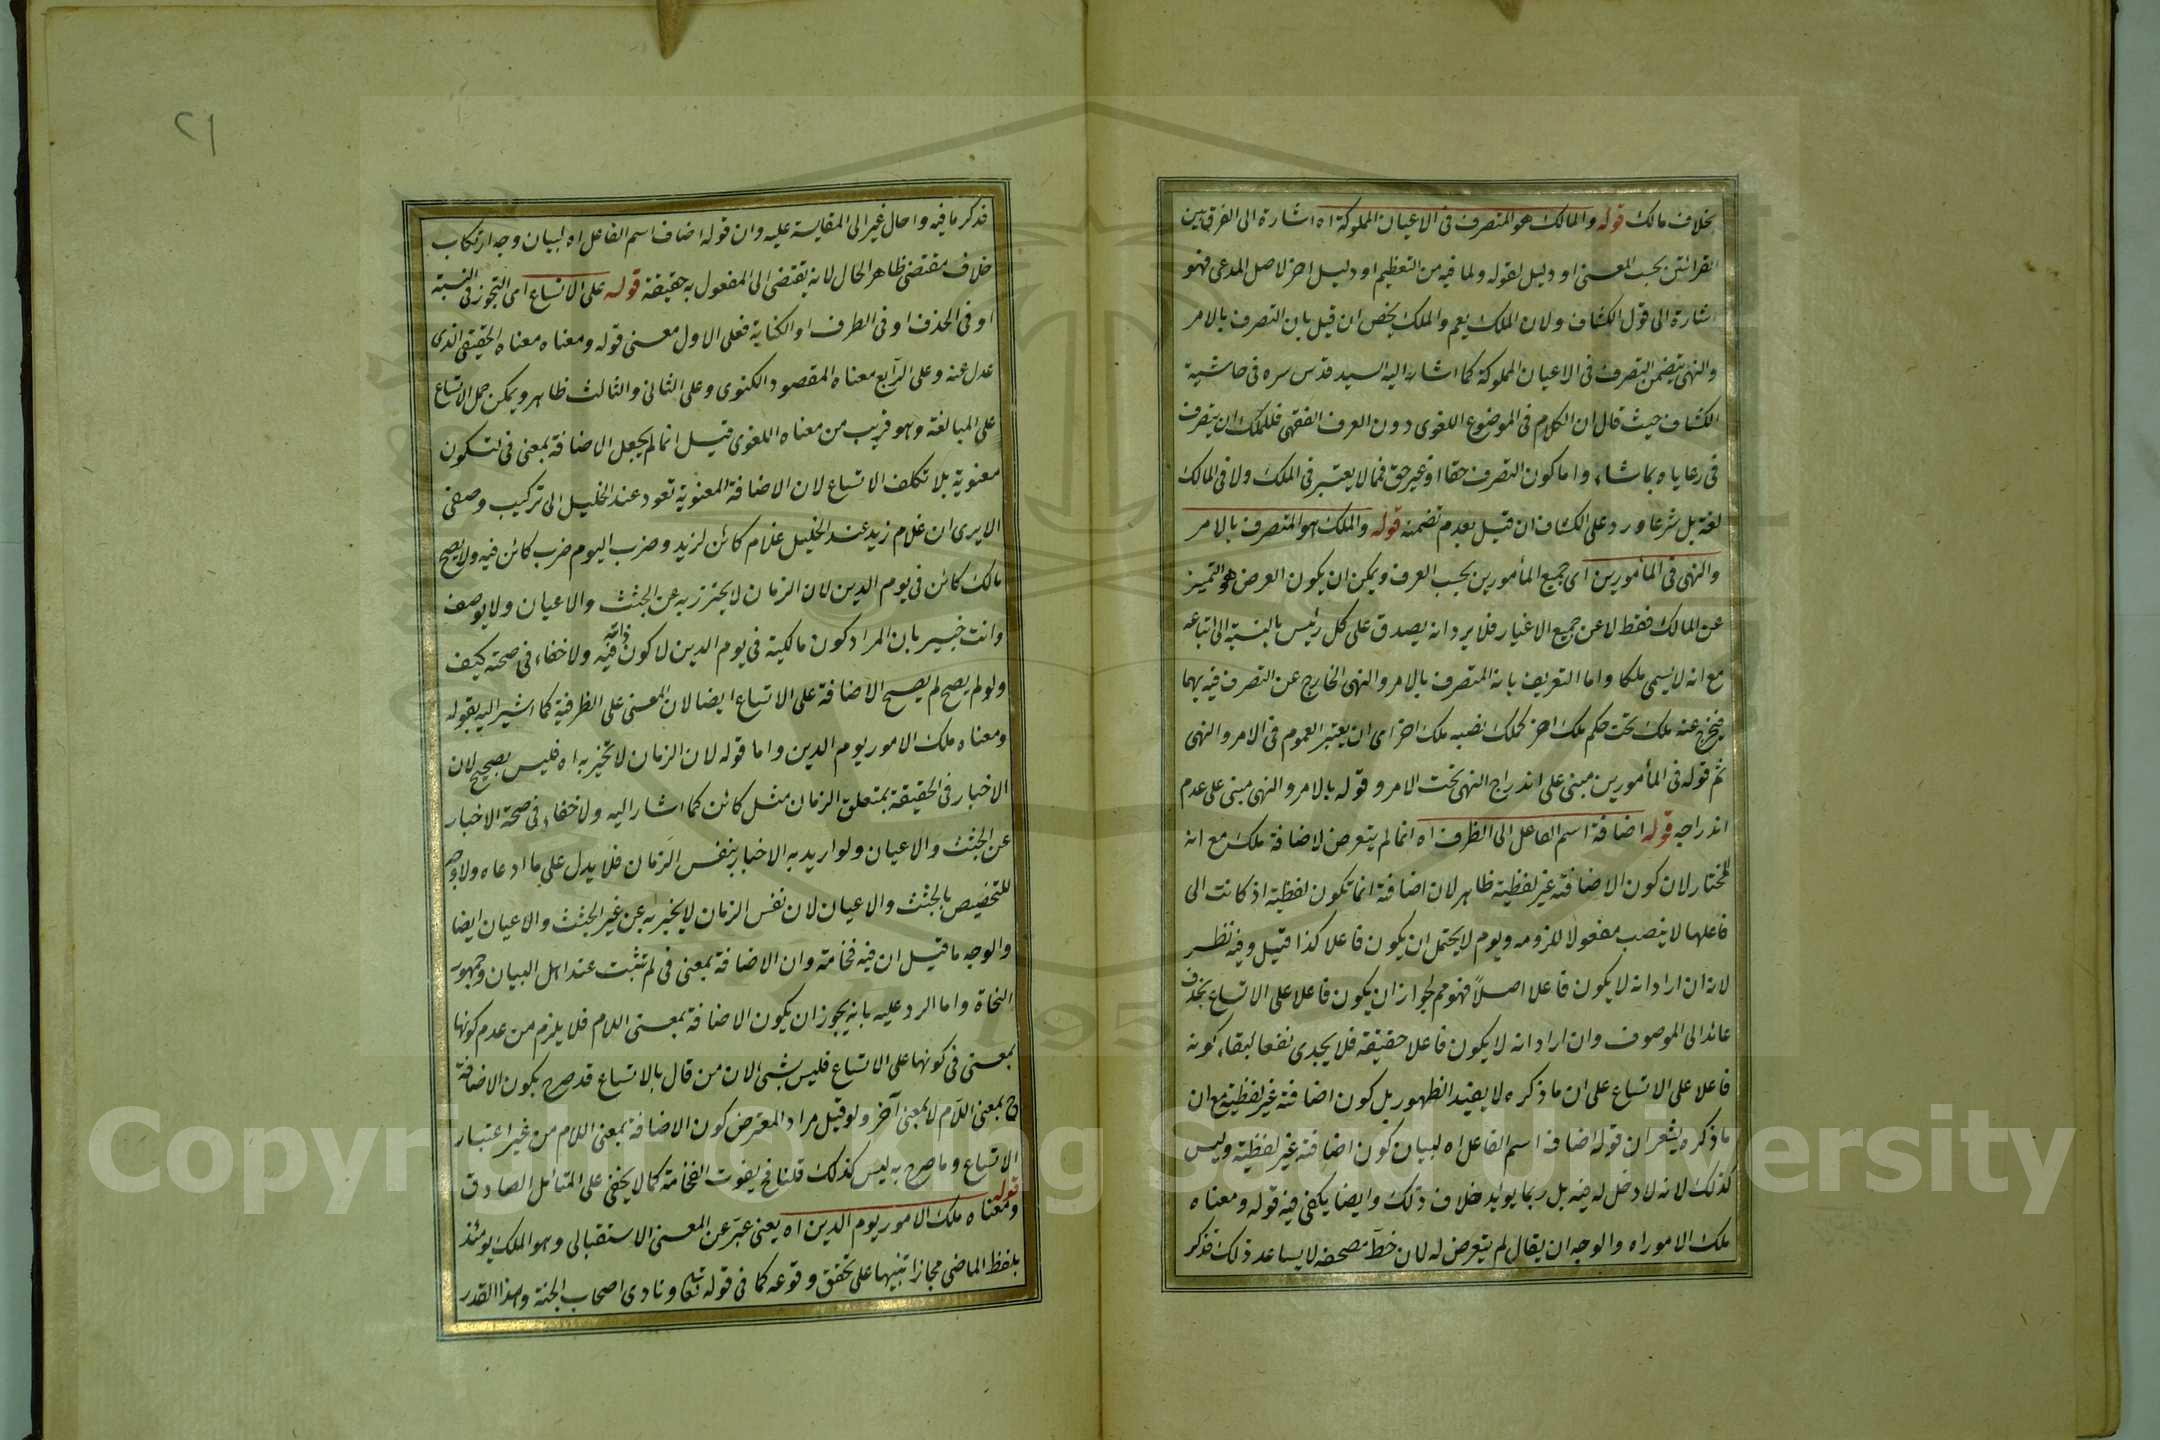 بخلاف مالك قوله والمالك هو المتصرف فى الاعيان المملوكة اه اشارة الى الفرق بين
القرائتين بحسب المعنى او دليل لقوله ولما فيه من التعظيم او دليل اخر لاصل المدعى فهو
اشارة الى قول الكشاف ولان الملك يعم والملك يخص ان قيل بان التصرف بالامر
والنهى يتضمن التصرف فى الاعيان المملوكة كما اشار اليه السيد قدس سره فى حاشية
الكشاف حيث قال ان الكلام فى الموضوع اللغوى دون العرف الفقهى فللملك ان يتصرف
فى رعاياه بما شاء واما كون التصرف حقا او غير حق فمما لا يعتبر فى الملك ولا فى المالك
لغة بل شرعا ورد على الكشاف ان قيل بعدم تضمنه قوله والملك هو المتصرف بالامر
والنهى فى المأمورين اى جميع المأمورين بحسب العرف ويمكن ان يكون الغرض هو التميز
عن المالك فقط لا عن جميع الاغيار فلا يرد انه يصدق على كل رئيس بالنسبة الى اتباعه
مع انه لا يسمى ملكا واما التعريف بانه المتصرف بالامر والنهى الخارج عن التصرف فيه بهما
فيخرج عنه ملك تحت حكم ملك اخر كملك نصبه ملك اخر اى ان يعتبر العموم فى الامر والنهى
ثم قوله فى المأمورين مبنى على اندراج النهى تحت الامر وقوله بالامر والنهى مبنى على عدم
اندراجه قوله اضافة اسم الفاعل الى الظرف اه انما لم يتعرض لاضافة ملك مع انه
المختار لان كون الاضافة غير لفظية ظاهر لان اضافة انما تكون لفظية اذ كانت الى
فاعلها لا ينصب مفعولا للزومه ويوم لا يحتمل ان يكون فاعلا كذا قيل وفيه نظر
لانه ان اراد انه لا يكون فاعلا اصلاً فهو مم لجواز ان يكون فاعلا على الاتساع بحذف
عائد الى الموصوف وان اراد انه لا يكون فاعلا حقيقة فلا يجدى نفعا لبقاء كونه
فاعلا على الاتساع على ان ما ذكره لا يفيد الظهور بل كون اضافة غير لفظية مع ان
ما ذكره يشعر ان قوله اضافة اسم الفاعل اه لبيان كون اضافة غير لفظية وليس
كذلك لانه لا دخل له فيه بل ربما يوايد خلاف ذلك وايضا يكفى فيه قوله ومعناه
ملك الامور اه والوجه ان يقال لم يتعرض له لان خط مصحفه لا يساعد ذلك فذكر
٢١
فذكر ما فيه واحال غير الى المقايسة عليه وان قوله اضاف اسم الفاعل اه لبيان وجه ارتكاب
خلاف مقتضى ظاهر الحال لانه يقتضى الى المفعول به حقيقة قوله على الاتساع اى التجوز فى النسبة
او فى الحذف او فى الطرف او الكناية فعلى الاول معنى قوله ومعناه معناه الحقيقى الذى
عدل عنه وعلى الرابع معناه المقصود الكنوى وعلى الثانى والثالث ظاهر ويمكن حمل الاتساع
على المبالغة وهو قريب من معناه اللغوى قيل انما لم يجعل الاضافة بمعنى فى لتكون
معنوية بلا تكلف الاتساع لان الاضافة المعنوية تعود عند الخليل الى تركيب وصفى
الا يرى ان غلام زيد عند الخليل غلام كائن لزيد وضرب اليوم ضرب كائن فيه ولا يصح
مالك كائن فى يوم الدين لان الزمان لا يخبر به عن الجثث والاعيان ولا يوصف
وانت خبير بان المراد كون مالكيته فى يوم الدين لا كون ذاته فيه ولا خفاء فى صحته كيف
ولو لم يصح لم يصح الاضافة على الاتساع ايضا لان المعنى على الظرفية كما اشير اليه بقوله
ومعناه ملك الامور يوم الدين واما قوله لان الزمان لا يخبر به اه فليس بصحيح لان
الاخبار فى الحقيقة بمتعلق الزمان مثل كائن كما اشار اليه ولا خفاء فى صحة الاخبار
عن الجثث والاعيان ولو اريد به الاخبار بنفس الزمان فلا يدل على ما ادعاه ولا وجه
للتخصيص بالجثث والاعيان لان نفس الزمان لا يخبر به عن غير الجثث والاعيان ايضا
والوجه ما قيل ان فيه فخامة وان الاضافة بمعنى فى لم تثبت عند اهل البيان وجمهور
النحاة واما الرد عليه بانه يجوز ان يكون الاضافة بمعنى اللام فلا يلزم من عدم كونها
بمعنى فى كونها على الاتساع فليس بشئ لان من قال بالاتساع قد صرح بكون الاضافة
ح بمعنى اللام لا بمعنى آخر ولو قيل مراد المعترض كون الاضافة بمعنى اللام من غير اعتبار
الاتساع وما صرح به ليس كذلك قلنا فح يفوت الفخامة كما لا يخفى على المتأمل الصادق
قوله ومعناه ملك الامور يوم الدين اه يعنى عبر عن المعنى الاستقبالى وهو الملك يومئذ
بلفظ الماضى مجازا تنبيها على تحقق وقوعه كما فى قوله تعالى ونادى اصحاب الجنة وهذا القدر
Copyright © King Saud University